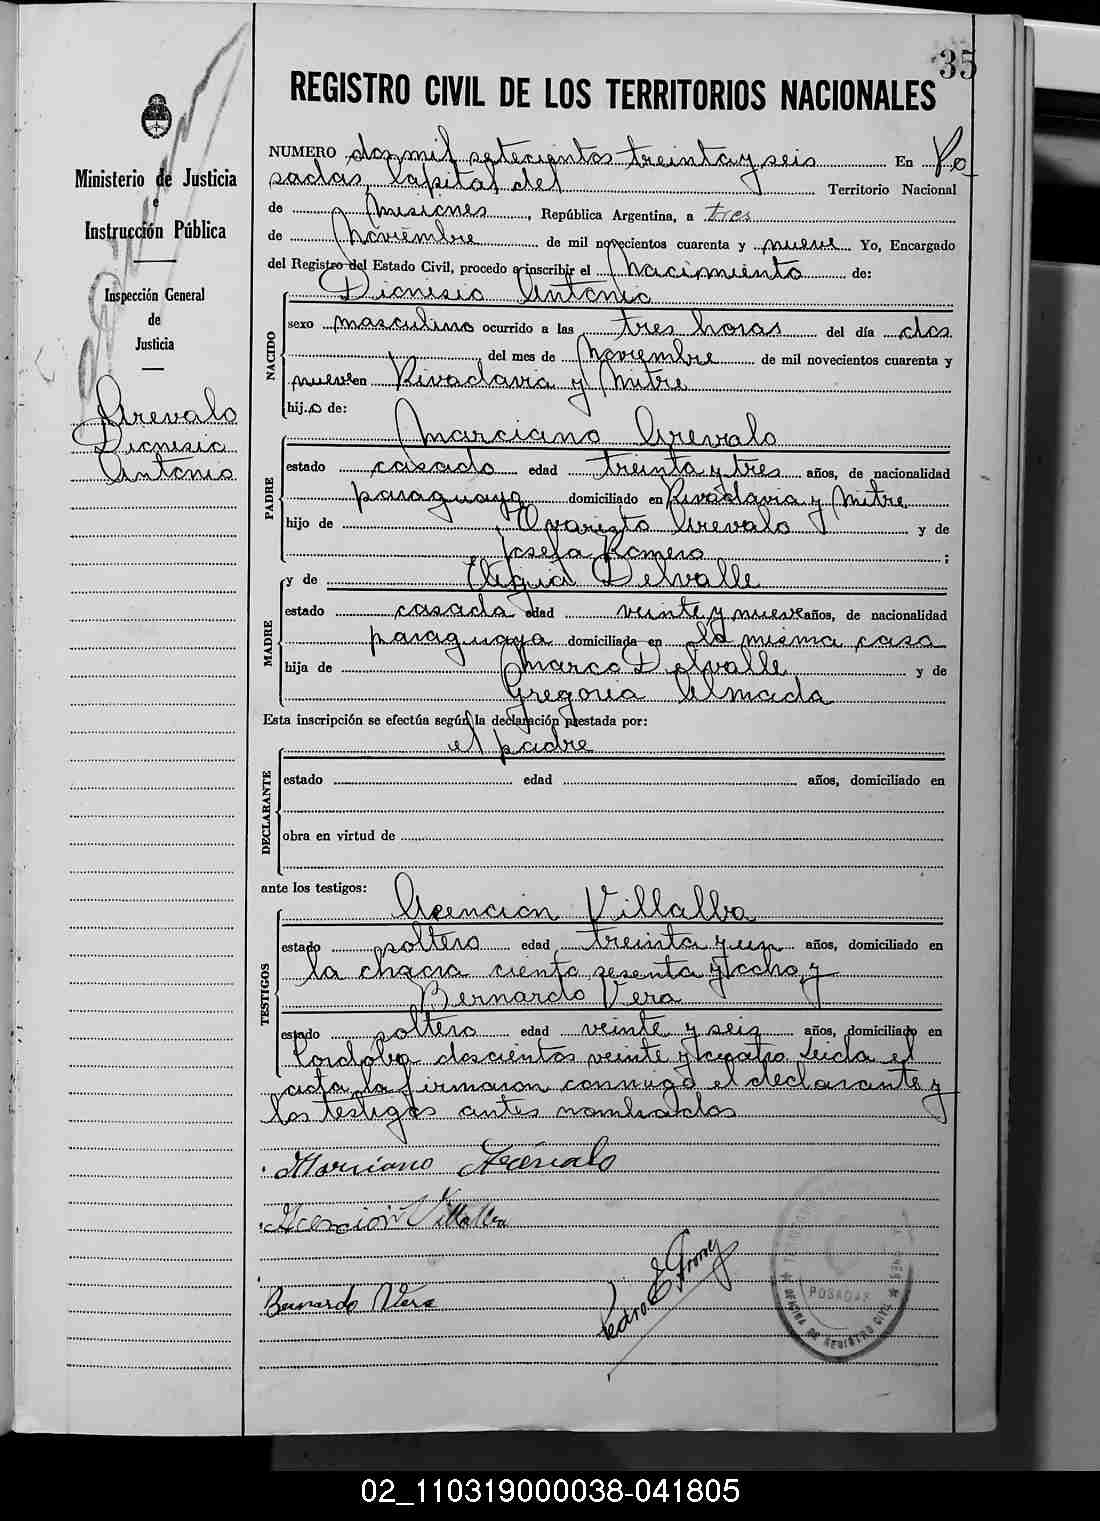 35
REGISTRO CIVIL DE LOS TERRITORIOS NACIONALES
Ministerio de Justicia
e
Instrucción Pública
Inspección General
de
Justicia
Arevalo
Dionisio
Antonio
NUMERO dos mil setecientos treinta y seis En Po
sadas, Capital del Territorio Nacional
de Misiones, República Argentina, a tres
de Noviembre de mil novecientos cuarenta y nueve Yo, Encargado
del Registro del Estado Civil, procedo a inscribir el Nacimiento de:
NACIDO
Dionisio Antonio
sexo masculino ocurrido a las tres horas del día dos
del mes de Noviembre de mil novecientos cuarenta y
nueve en Rivadavia y Mitre
hijo de:
PADRE
Marciano Arevalo
estado casado edad treinta y tres años, de nacionalidad
paraguaya domiciliado en Rivadavia y Mitre
hijo de Evaristo Arevalo y de
Josefa Romero ;
MADRE
y de Delvalle
estado casada edad veinte y nueve años, de nacionalidad
paraguaya domiciliada en la misma casa
hija de Marco Delvalle y de
Gregoria Almada
Esta inscripción se efectúa según la declaración prestada por:
DECLARANTE
el padre
estado edad años, domiciliado en
obra en virtud de
ante los testigos:
TESTIGOS
Acencion Villalba
estado soltero edad treinta y un años, domiciliado en
la chacra ciento sesenta y ocho y
Bernardo Vera
estado soltero edad veinte y seis años, domiciliado en
Cordoba doscientos veinte y cuatro Leida el
acta la firmaron conmigo el declarante y
los testigos antes nombrados
Marciano Arevalo
Acencion Villalba
Bernardo Vera
Pedro E
POSADAS
OFICINA DE REGISTRO CIVIL
02_110319000038-041805